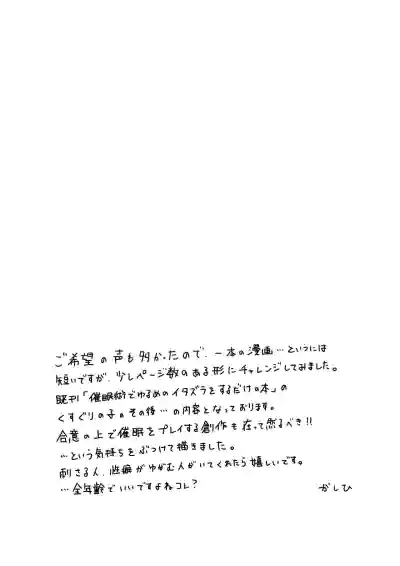 ご希望の声も多かったので、一本の漫画…というには
短いですが、少しページ数のある形にチャレンジしてみました。
既刊「催眠術でゆるめのイタズラをするだけの本」の
くすぐりの子の その後…の内容となっております。
合意の上で催眠をプレイする創作も在って然るべき!!
…という気持ちをぶつけて描きました。
刺さる人、性癖がゆがむ人がいてくれたら嬉しいです。
…全年齢でいいですよねコレ?
かしひ